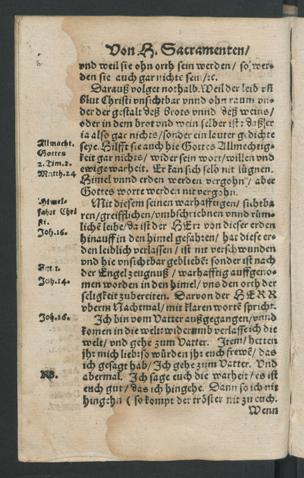 Von H. Sacramenten/
vnd weil sie ohn orth sein werden/ so wer-
den sie auch gar nichte sein/ ꝛc.
Darauß volget nothalb: Weil der leib vñ
Blut Christi vnsichtbar vnnd ohn raum vn-
der der gestalt deß brots vnnd deß weins/
oder in dem brot vnd wein selber ist: dz dieser
ja also gar nichts/ sonder ein lauter gedichte
seye. Hilfft sie auch hie Gottes Allmechtig-
keit gar nichts/ wider sein wort/ willen vnd
ewige warheit. Er kan sich selb nit lügnen.
Himel vnnd erden werden vergohn/ aber
Gottes worte werden nit vergohn.
Mit diesem seinen warhafftigen/ sichtba-
ren/ greifflichen/ vmbschriebnen vnnd rüm-
liche leibe/ da ist der HErr von dieser erden
hinauff in den himel gefahren/ hat diese er-
den leiblich verlassen/ ist nit verschwunden
vnd hie vnsichtbar gebliebē: sonder ist nach
der Engel zeugnuß/ warhafftig auffgenom-
men worden in den himel/ vns den orth der
seligkeit zubereiten. Daruon der HERR
vberm Nachtmal/ mit klaren worte spricht.
Ich bin vom Vatter außgegangen/ vnnd
komen in die welt: widerumb verlasse ich die
welt/ vnd gehe zum Vatter. Item/ hetten
jhr mich lieb: so würden jhr euch frewē/ das
ich gesagt hab/ Ich gehe zum Vatter. Vnd
abermal. Ich sage euch die warheit/ es ist
euch gut/ das ich hingehe. Dann so ich nit
hingehn/ so kompt der tröster nit zu euch.
Wenn
Allmacht
Gottes
2. Tim. 2.
Matth. 24
Himel-
fahrt Chri
sti.
Joh. 16.
Act. 1.
Joh. 14.
Joh. 16.
NB.